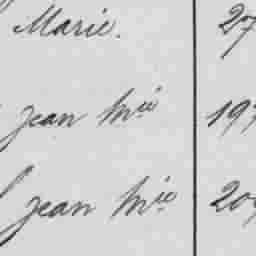 Marie. 27
Jean Mie 197
Jean Mie 209